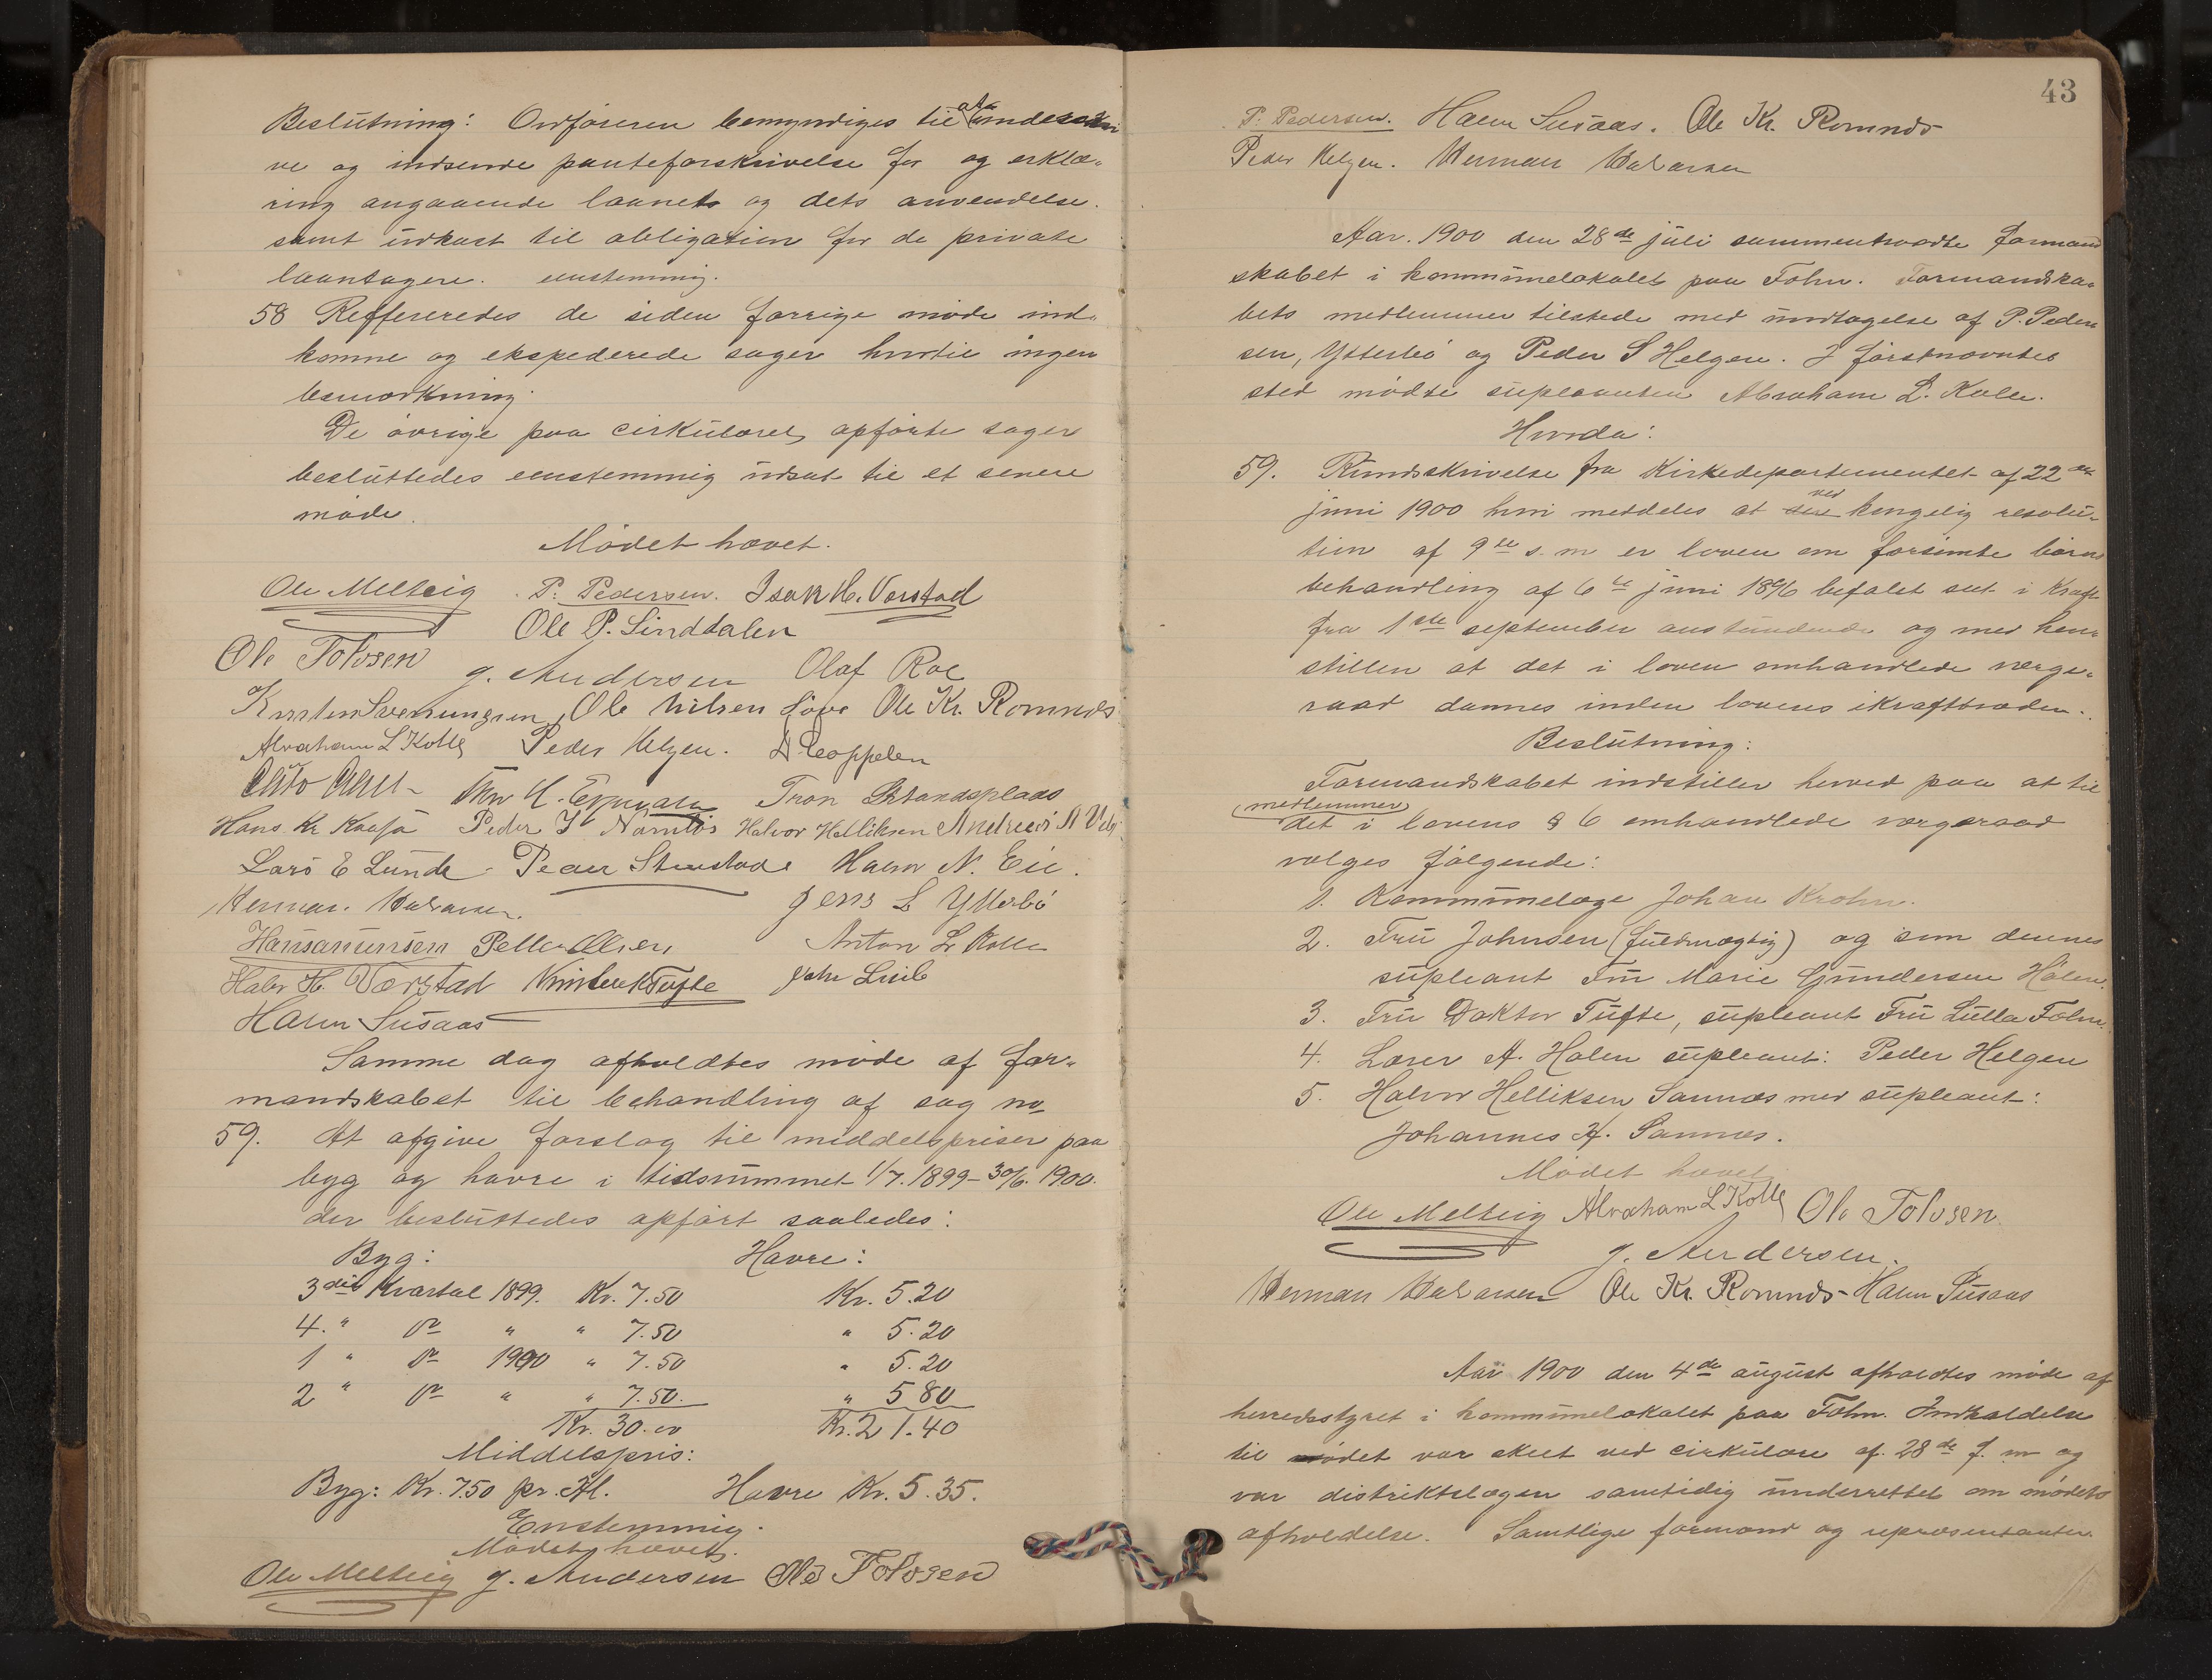 Beslutning: Ordføreren bemyndiges til at underskri
ve og indsende panteforskrivelse for og erklæ-
ring angaaende laanets og dets anvendelse.
samt udkast til obligation for de private
laantagere. enstemmig.
58 Reffereredes de siden forrige møde ind-
komne og ekspederede sager hvortil ingen
bemærkning.
De øvrige paa cirkulæret opførte sager
besluttedes enstemmig udsat til et senere
møde.
Mødet hævet.
Ole Melteig P. Pedersen. Isak H. Værstad
Ole P. Linddalen
Ole Tolvsen g. Andersen Olaf Roe
Karsten Svenungsen Ole Nilsen Ole Kr. Romnæs
Abraham L Kolle Peder Helgen. A Coppelen
Tron Strandsplads
Hans Kr Kaasa Peder Namløs Halvor Helliksen Andreas A
Lars E Lunde Peder Stenstad Halvor N. Eie.
Herman Halvorsen. Jens L Ytterbø
Hans Hansen Petter Olsen Anton L Kolle
Halv H. Værstad Tufte John Lie
Halvor Susaas
Samme dag afholdtes møde af for-
mandskabet til behandling af sag no
59. At afgive forslag til middelspriser paa
byg og havre i tidsrummet 1/7. 1899 – 30/6. 1900.
der besluttedes opført saaledes:
Byg: Havre:
3die Kvartal 1899. Kr. 7.50 Kr. 5.20
4. " do " " 7.50 " 5.20
1 " do 1900 " 7.50 " 5.20
2 " do " " 7.50. " 5 80
Kr. 30.00 Kr. 21.40
Middelspris:
Byg: Kr. 7.50 pr. Hl. Havre Kr. 5.35.
Enstemmig.
Mødet hævet.
Ole Melteig g. Andersen Ole Tolvsen
43
P. Pedersen. Halvor Susaas. Ole Kr. Romnæs
Peder Helgen. Herman Halvorsen
Aar. 1900 den 28de juli sammentraadte formand
skabet i kommunelokalet paa Folm. Formandska-
bets medlemmer tilstede med undtagelse af P. Peder
sen, Ytterbø og Peder S Helgen. I førstnævntes
sted mødte supleanten Abraham L. Kolle.
Hvorda:
59. Rundskrivelse fra Kirkedepartementet af 22de
juni 1900 hvori meddeles at ved kongelig resolu-
tion af 9de s. m er loven om forsømte børns
behandling af 6te juni 1896 befalet sat i kraft
fra 1ste september anstundende og med hen-
stillen at det i loven omhandlede værge-
raad dannes inden lovens ikrafttræden.
Beslutning:
Formandskabet indstiller herved paa at til
medlemmer
det i lovens § 6 omhandlede værgeraad
vælges følgende:
1. Kommunelæge Johan Krohn.
2. Fru Johnsen (fuldmægtig) og som dennes
supleant Fru Marie Gundersen Holen.
3. Fru Doktor Tufte, supleant Fru Lulla Folm.
4. Lærer A. Holen supleant: Peder Helgen
5. Halvor Helliksen Sannæs med supleant:
Johannes H. Sannes.
Mødet hævet
Ole Melteig Abraham L Kolle Ole Tolvsen
g. Andersen.
Herman Halvorsen Ole Kr. Romnæs Halvor Susaas
Aar 1900 den 4de august afholdtes møde af
herredsstyret i kommunelokalet paa Folm. Indkaldelse
til mødet var skeet ved cirkulære af 28de f. m og
var distriktslægen samtidig underrettet om mødets
afholdelse. Samtlige formænd og repræsentanter